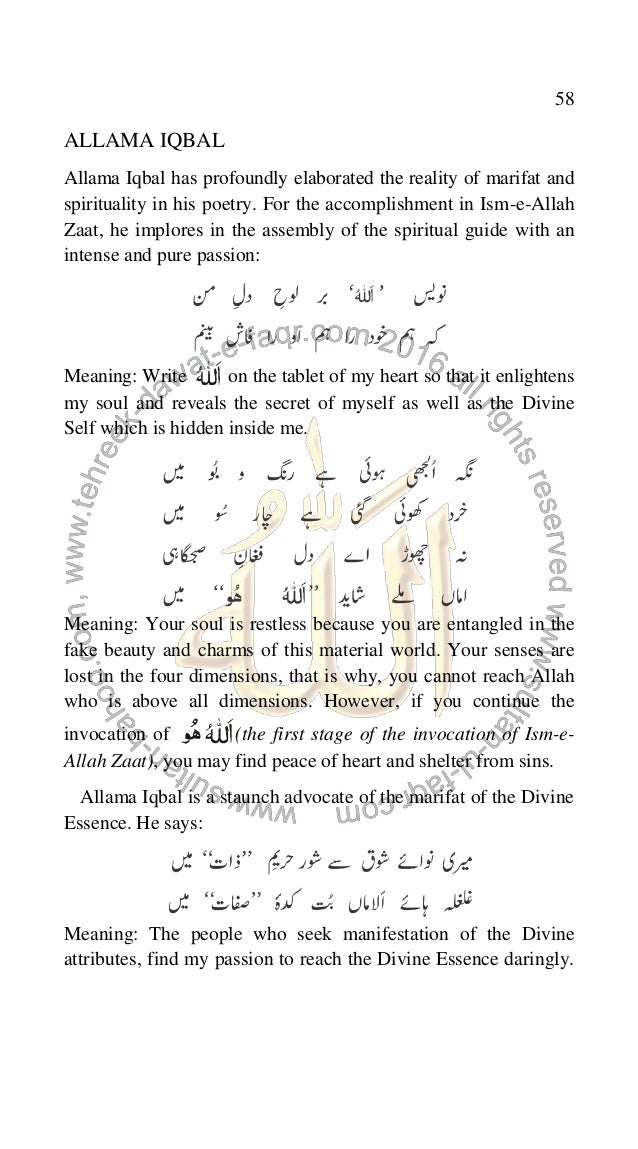 58
ALLAMA IQBAL
Allama Iqbal has profoundly elaborated the reality of marifat and
spirituality in his poetry. For the accomplishment in Ism-e-Allah
Zaat, he implores in the assembly of the spiritual guide with an
intense and pure passion:
نویس ’اَللّٰہُ‘ بر لوحِ دلِ من
کہ ہم خود را ہم او را فاش بینم
Meaning: Write اَللّٰہُ on the tablet of my heart so that it enlightens
my soul and reveals the secret of myself as well as the Divine
Self which is hidden inside me.
نگہ اُلجھی ہوئی ہے رنگ و بُو میں
خرد کھوئی گئی ہے چار سُو میں
نہ چھوڑ اے دل فغانِ صبحگاہی
اماں شاید ملے ’’اَللّٰہُ ھُو‘‘ میں
Meaning: Your soul is restless because you are entangled in the
fake beauty and charms of this material world. Your senses are
lost in the four dimensions, that is why, you cannot reach Allah
who is above all dimensions. However, if you continue the
invocation of اَللّٰہُ ھُو (the first stage of the invocation of Ism-e-
Allah Zaat), you may find peace of heart and shelter from sins.
Allama Iqbal is a staunch advocate of the marifat of the Divine
Essence. He says:
میری نوائے شوق سے شور حریمِ ’’ذات‘‘ میں
غلغلہ ہائے اَلاماں بُت کدۂ ’’صفات‘‘ میں
Meaning: The people who seek manifestation of the Divine
attributes, find my passion to reach the Divine Essence daringly.
اللہ
www.tehreek-dawat-e-faqr.com 2016 all rights reserved www.sultan-ul-faqr.com www.sultan-bahoo.com,